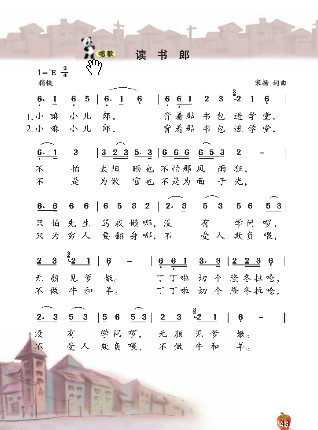 唱歌
读书郎
1=E 2/4
稍快
宋扬 词曲
6. 1 6 5 | 6. 1 6 | 6 6 1 2 3 | 2 1 6 |
1.小嘛小儿郎， 背着那书包进学堂，
2.小嘛小儿郎， 背着那书包进学堂，
6. 1 3 | 3 2 3 5. 3 | 6 6 6 6 5 3 | 2 - |
不怕太阳晒也不怕那风雨狂，
不是为做官也不是为面子光，
6. 6 6 6 | 6 5 3 2 | 2. 3 5 3 | 5 6 5 3 |
只怕先生骂我懒哪，没有学问啰，
只为穷人要翻身哪，不受人欺负嘿，
2 3 2 1 | 6 - | 6 6 1 3. 3 | 2 2 2 3 6 |
无颜见爹娘。 丁丁啦 切个隆冬拉呛，
不做牛和羊； 丁丁啦 切个隆冬拉呛，
2. 3 5 3 | 5 6 5 3 | 2 3 2 1 | 6 - |
没有学问啰，无颜见爹娘；
不受人欺负嘿，不做牛和羊；
43